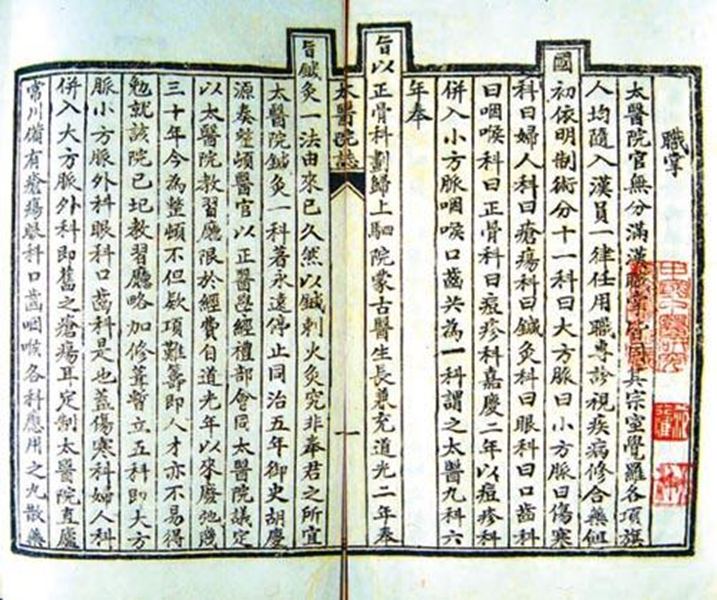 職掌
太醫院官無分滿漢職掌皆同其宗室覺羅各項旗
人均隨入漢員一律任用職專診視疾病修合藥餌
國初依明制術分十一科曰大方脈曰小方脈曰傷寒
科曰婦人科曰瘡瘍科曰鍼灸科曰眼科曰口齒科
曰咽喉科曰正骨科曰痘疹科嘉慶二年以痘疹科
併入小方脈咽喉口齒共為一科謂之太醫九科六
年奉
旨以正骨科劃歸上駟院蒙古醫生長兼充道光二年奉
太醫院誌 一
旨鍼灸一法由來已久然以鍼刺火灸究非奉君之所宜
太醫院鍼灸一科著永遠停止同治五年御史胡慶
源奏整頓醫官以正醫學經禮部會同太醫院議定
以太醫院教習廳限於經費自道光年以來廢弛幾
三十年今為整頓不但款項難籌即人才亦不易得
勉就該院已圮教習廳略加修葺暫立五科即大方
脈小方脈外科眼科口齒科是也蓋傷寒科婦人科
併入大方脈外科即舊之瘡瘍耳定制太醫院直廬
常川備有瘡瘍眼科口齒咽喉各科應用之丸散藥